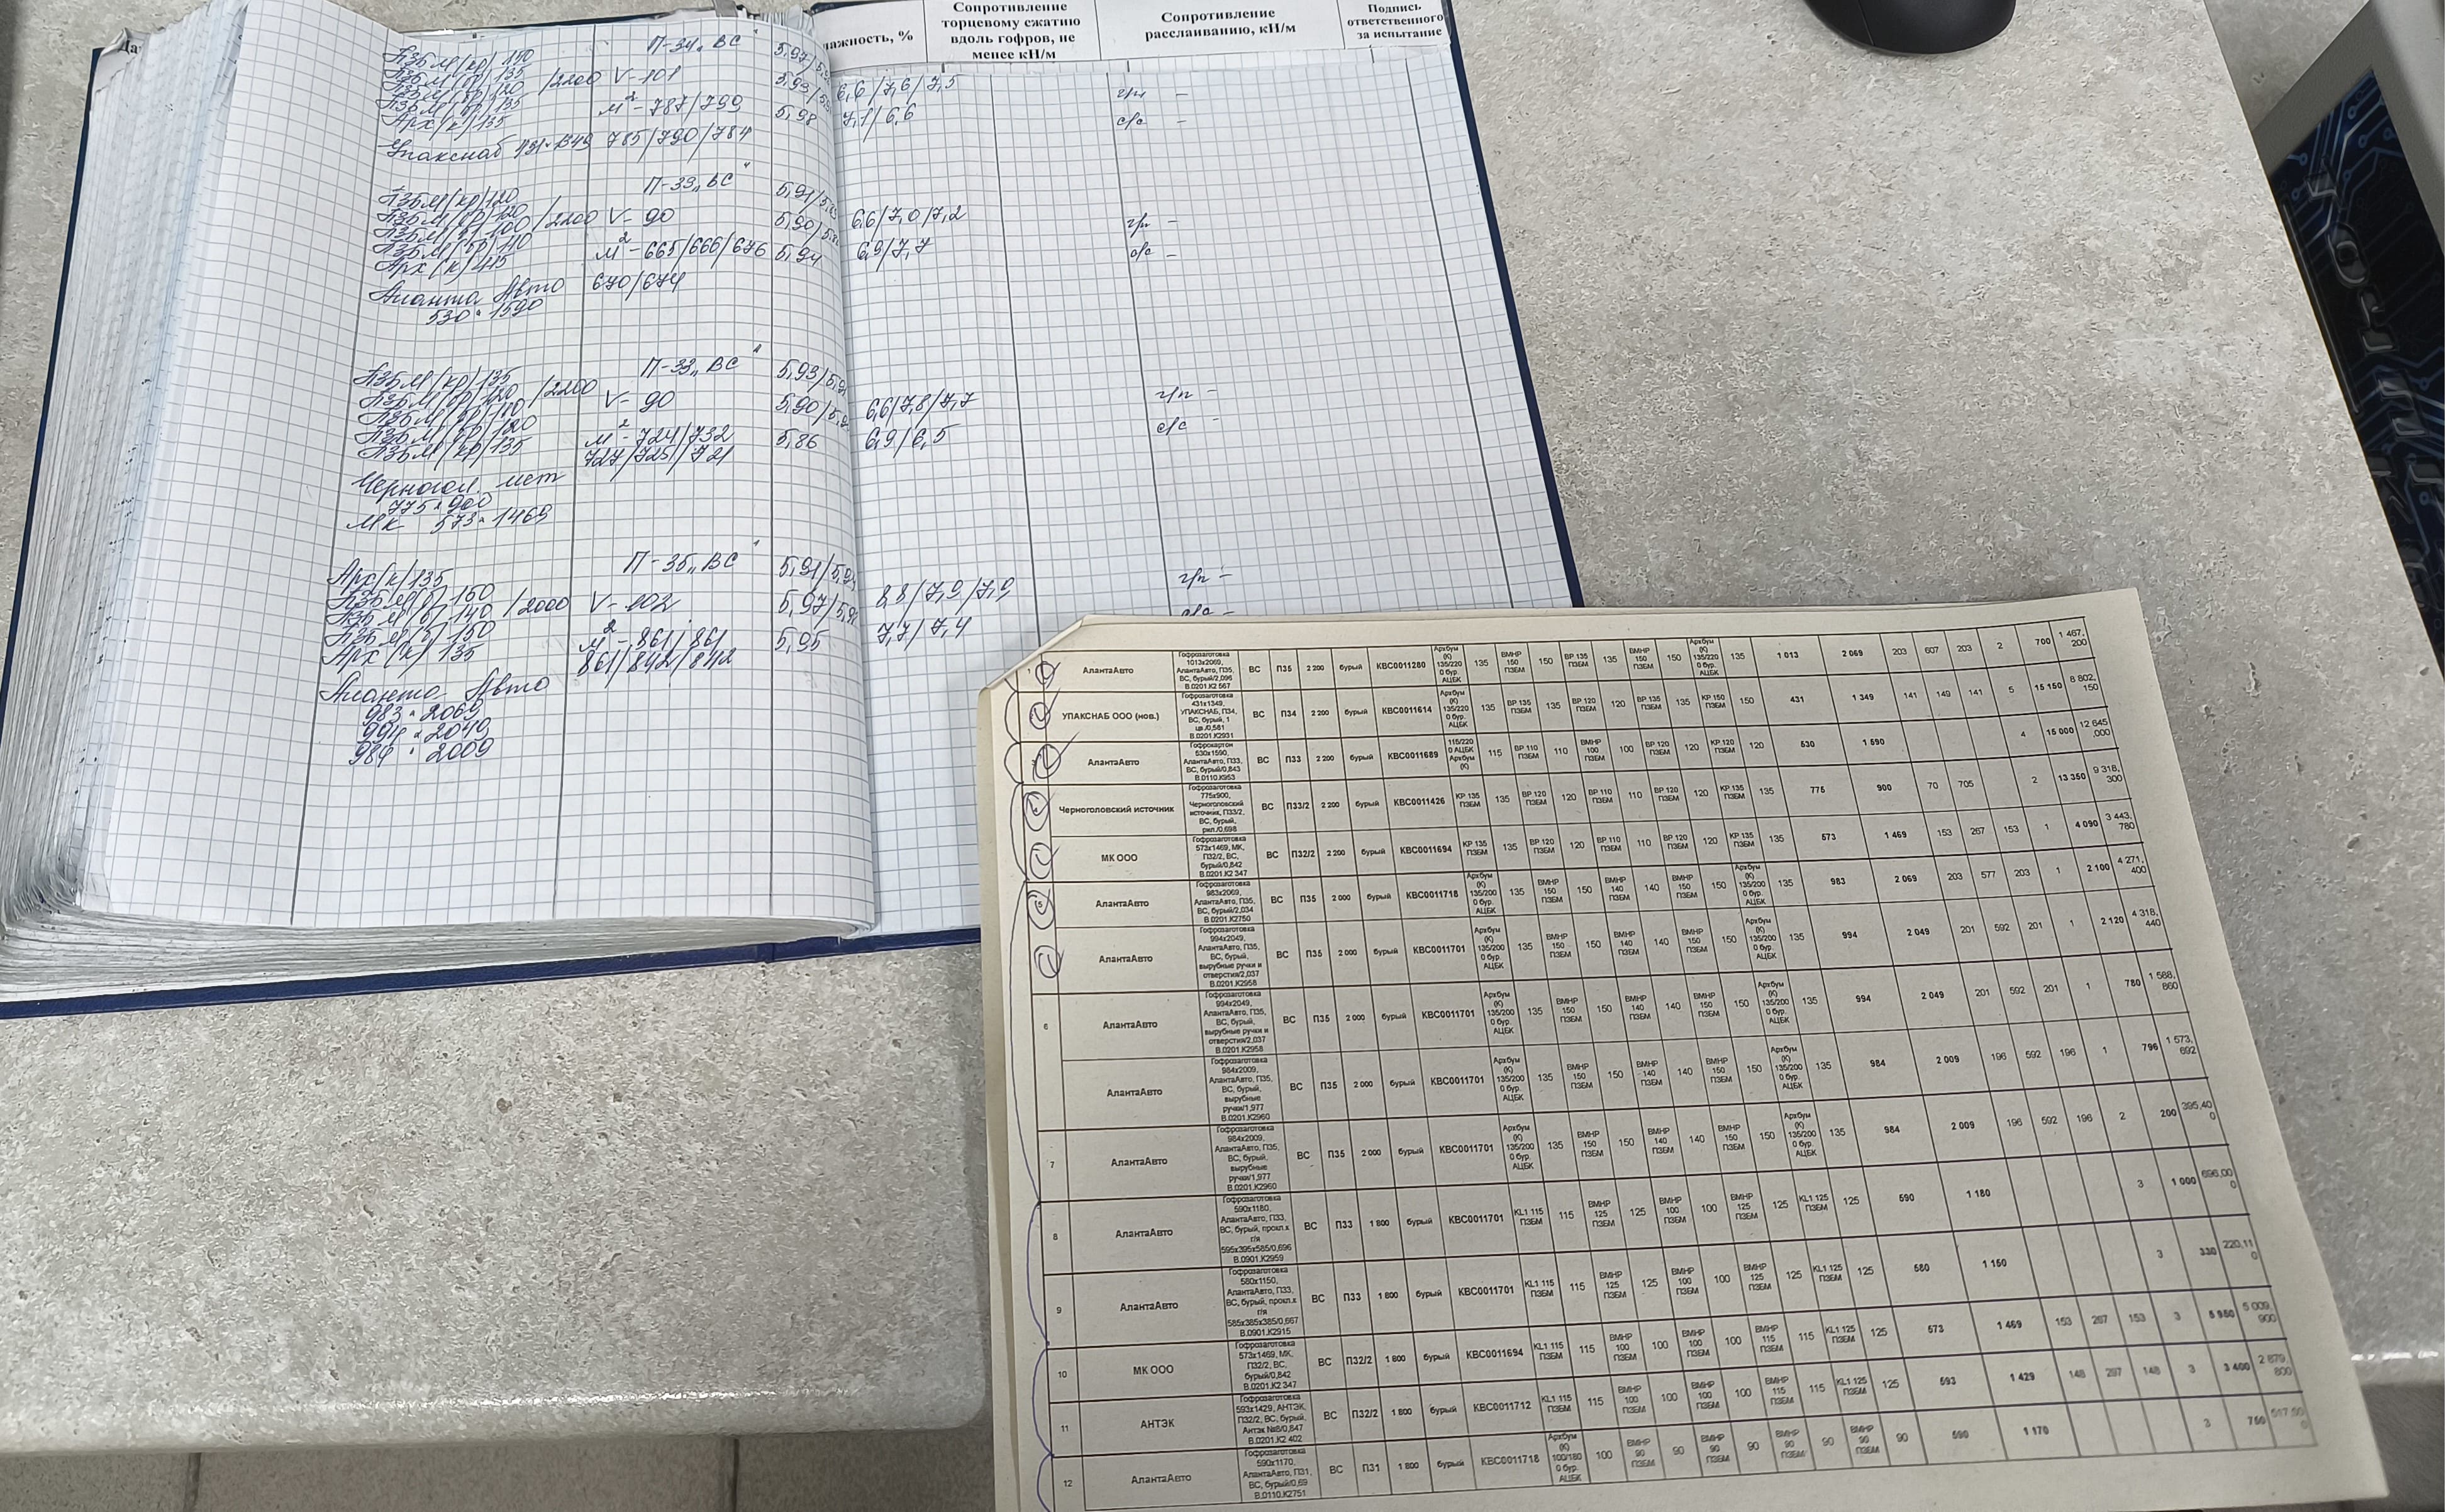 Сопротивление
торцевому сжатию
вдоль гофров, не
менее кН/м
Сопротивление
расслаиванию, кН/м
Подпись
ответственного
за испытание
ПЗБМ(кр) 150 П-34 „ВС"
ПЗБМ(бр) 135 /2200 V-101
ПЗБМ(бр) 120
ПЗБМ(бр) 135 м²-787/799 5,98
Арх(к) 135
Упакснаб 431×1349 785/790/784
6,6/7,6/7,5 г/п -
7,1/6,6 с/с -
ПЗБМ(кр) 120 П-33 „ВС"
ПЗБМ(бр) 120 /2200 V-90
ПЗБМ(б) 100
ПЗБМ(бр) 110 м²-665/666/676 5,94
Арх(к) 115
Аланта Авто 670/674
530×1590
6,6/7,0/7,2 г/п -
6,9/7,7 с/с -
ПЗБМ(кр) 135 П-33 „ВС"
ПЗБМ(бр) 120 /2200 V-90
ПЗБМ(бр) 110
ПЗБМ(бр) 120 м²-724/732 5,86
ПЗБМ(кр) 135 727/725/721
Черногол. ист
775×900
МК 573×1469
6,6/7,8/7,7 г/п -
6,9/6,5 с/с -
Арх(к) 135 П-35 „ВС"
ПЗБМ(б) 150 /2000 V-102
ПЗБМ(б) 140
ПЗБМ(б) 150 м²-861/861 5,95
Арх(к) 135 861/842/842
Аланта Авто
983×2069
994×2049
984×2009
8,8/7,9/7,9 г/п -
7,7/7,4 с/с -
1 АлантаАвто Гофрозаготовка 1013х2069, АлантаАвто, П35, ВС, бурый/2,096 В.0201.К2 567 ВС П35 2 200 бурый КВС0011280 Архбум (К) 135/2200 бур. АЦБК 135 ВМНР 150 ПЗБМ 150 ВР 135 ПЗБМ 135 ВМНР 150 ПЗБМ 150 Архбум (К) 135/2200 бур. АЦБК 135 1 013 2 069 203 607 203 2 700 1 467,200
УПАКСНАБ ООО (нов.) Гофрозаготовка 431х1349, УПАКСНАБ, П34, ВС, бурый, 1 цв./0,581 В.0201.К2931 ВС П34 2 200 бурый КВС0011614 Архбум (К) 135/2200 бур. АЦБК 135 ВР 135 ПЗБМ 135 ВР 120 ПЗБМ 120 ВР 135 ПЗБМ 135 КР 150 ПЗБМ 150 431 1 349 141 149 141 5 15 150 8 802,150
АлантаАвто Гофрокартон 530х1590, АлантаАвто, П33, ВС, бурый/0,843 В.0110.К953 ВС П33 2 200 бурый КВС0011689 115/2200 АЦБК Архбум (К) 115 ВР 110 ПЗБМ 110 ВМНР 100 ПЗБМ 100 ВР 120 ПЗБМ 120 КР 120 ПЗБМ 120 530 1 590 4 15 000 12 645,000
Черноголовский источник Гофрозаготовка 775х900, Черноголовский источник, П33/2, ВС, бурый, рил./0,698 ВС П33/2 2 200 бурый КВС0011426 КР 135 ПЗБМ 135 ВР 120 ПЗБМ 120 ВР 110 ПЗБМ 110 ВР 120 ПЗБМ 120 КР 135 ПЗБМ 135 775 900 70 705 2 13 350 9 318,300
МК ООО Гофрозаготовка 573х1469, МК, П32/2, ВС, бурый/0,842 В.0201.К2 347 ВС П32/2 2 200 бурый КВС0011694 КР 135 ПЗБМ 135 ВР 120 ПЗБМ 120 ВР 110 ПЗБМ 110 ВР 120 ПЗБМ 120 КР 135 ПЗБМ 135 573 1 469 153 267 153 1 4 090 3 443,780
5 АлантаАвто Гофрозаготовка 983х2069, АлантаАвто, П35, ВС, бурый/2,034 В.0201.К2750 ВС П35 2 000 бурый КВС0011718 Архбум (К) 135/2000 бур. АЦБК 135 ВМНР 150 ПЗБМ 150 ВМНР 140 ПЗБМ 140 ВМНР 150 ПЗБМ 150 Архбум (К) 135/2000 бур. АЦБК 135 983 2 069 203 577 203 1 2 100 4 271,400
АлантаАвто Гофрозаготовка 994х2049, АлантаАвто, П35, ВС, бурый, вырубные ручки и отверстия/2,037 В.0201.К2958 ВС П35 2 000 бурый КВС0011701 Архбум (К) 135/2000 бур. АЦБК 135 ВМНР 150 ПЗБМ 150 ВМНР 140 ПЗБМ 140 ВМНР 150 ПЗБМ 150 Архбум (К) 135/2000 бур. АЦБК 135 994 2 049 201 592 201 1 2 120 4 318,440
6 АлантаАвто Гофрозаготовка 994х2049, АлантаАвто, П35, ВС, бурый, вырубные ручки и отверстия/2,037 В.0201.К2958 ВС П35 2 000 бурый КВС0011701 Архбум (К) 135/2000 бур. АЦБК 135 ВМНР 150 ПЗБМ 150 ВМНР 140 ПЗБМ 140 ВМНР 150 ПЗБМ 150 Архбум (К) 135/2000 бур. АЦБК 135 994 2 049 201 592 201 1 780 1 588,860
АлантаАвто Гофрозаготовка 984х2009, АлантаАвто, П35, ВС, бурый, вырубные ручки/1,977 В.0201.К2960 ВС П35 2 000 бурый КВС0011701 Архбум (К) 135/2000 бур. АЦБК 135 ВМНР 150 ПЗБМ 150 ВМНР 140 ПЗБМ 140 ВМНР 150 ПЗБМ 150 Архбум (К) 135/2000 бур. АЦБК 135 984 2 009 196 592 196 1 796 1 573,692
7 АлантаАвто Гофрозаготовка 984х2009, АлантаАвто, П35, ВС, бурый, вырубные ручки/1,977 В.0201.К2960 ВС П35 2 000 бурый КВС0011701 Архбум (К) 135/2000 бур. АЦБК 135 ВМНР 150 ПЗБМ 150 ВМНР 140 ПЗБМ 140 ВМНР 150 ПЗБМ 150 Архбум (К) 135/2000 бур. АЦБК 135 984 2 009 196 592 196 2 200 395,400
8 АлантаАвто Гофрозаготовка 590х1180, АлантаАвто, П33, ВС, бурый, прокл.к г/я 595х395х585/0,696 В.0901.К2959 ВС П33 1 800 бурый КВС0011701 KL1 115 ПЗБМ 115 ВМНР 125 ПЗБМ 125 ВМНР 100 ПЗБМ 100 ВМНР 125 ПЗБМ 125 KL1 125 ПЗБМ 125 590 1 180 3 1 000 696,000
9 АлантаАвто Гофрозаготовка 580х1150, АлантаАвто, П33, ВС, бурый, прокл.к г/я 585х385х385/0,667 В.0901.К2915 ВС П33 1 800 бурый КВС0011701 KL1 115 ПЗБМ 115 ВМНР 125 ПЗБМ 125 ВМНР 100 ПЗБМ 100 ВМНР 125 ПЗБМ 125 KL1 125 ПЗБМ 125 580 1 150 3 330 220,110
10 МК ООО Гофрозаготовка 573х1469, МК, П32/2, ВС, бурый/0,842 В.0201.К2 347 ВС П32/2 1 800 бурый КВС0011694 KL1 115 ПЗБМ 115 ВМНР 100 ПЗБМ 100 ВМНР 100 ПЗБМ 100 ВМНР 115 ПЗБМ 115 KL1 125 ПЗБМ 125 573 1 469 153 267 153 3 5 950 5 009,900
11 АНТЭК Гофрозаготовка 593х1429, АНТЭК, П32/2, ВС, бурый, Антэк №8/0,847 В.0201.К2 402 ВС П32/2 1 800 бурый КВС0011712 KL1 115 ПЗБМ 115 ВМНР 100 ПЗБМ 100 ВМНР 100 ПЗБМ 100 ВМНР 115 ПЗБМ 115 KL1 125 ПЗБМ 125 593 1 429 148 297 148 3 3 400 2 879,800
12 АлантаАвто Гофрозаготовка 590х1170, АлантаАвто, П31, ВС, бурый/0,69 В.0110.К2751 ВС П31 1 800 бурый КВС0011718 Архбум (К) 100/1800 бур. АЦБК 100 ВМНР 90 ПЗБМ 90 ВМНР 90 ПЗБМ 90 ВМНР 90 ПЗБМ 90 ВМНР 90 ПЗБМ 90 590 1 170 3 750